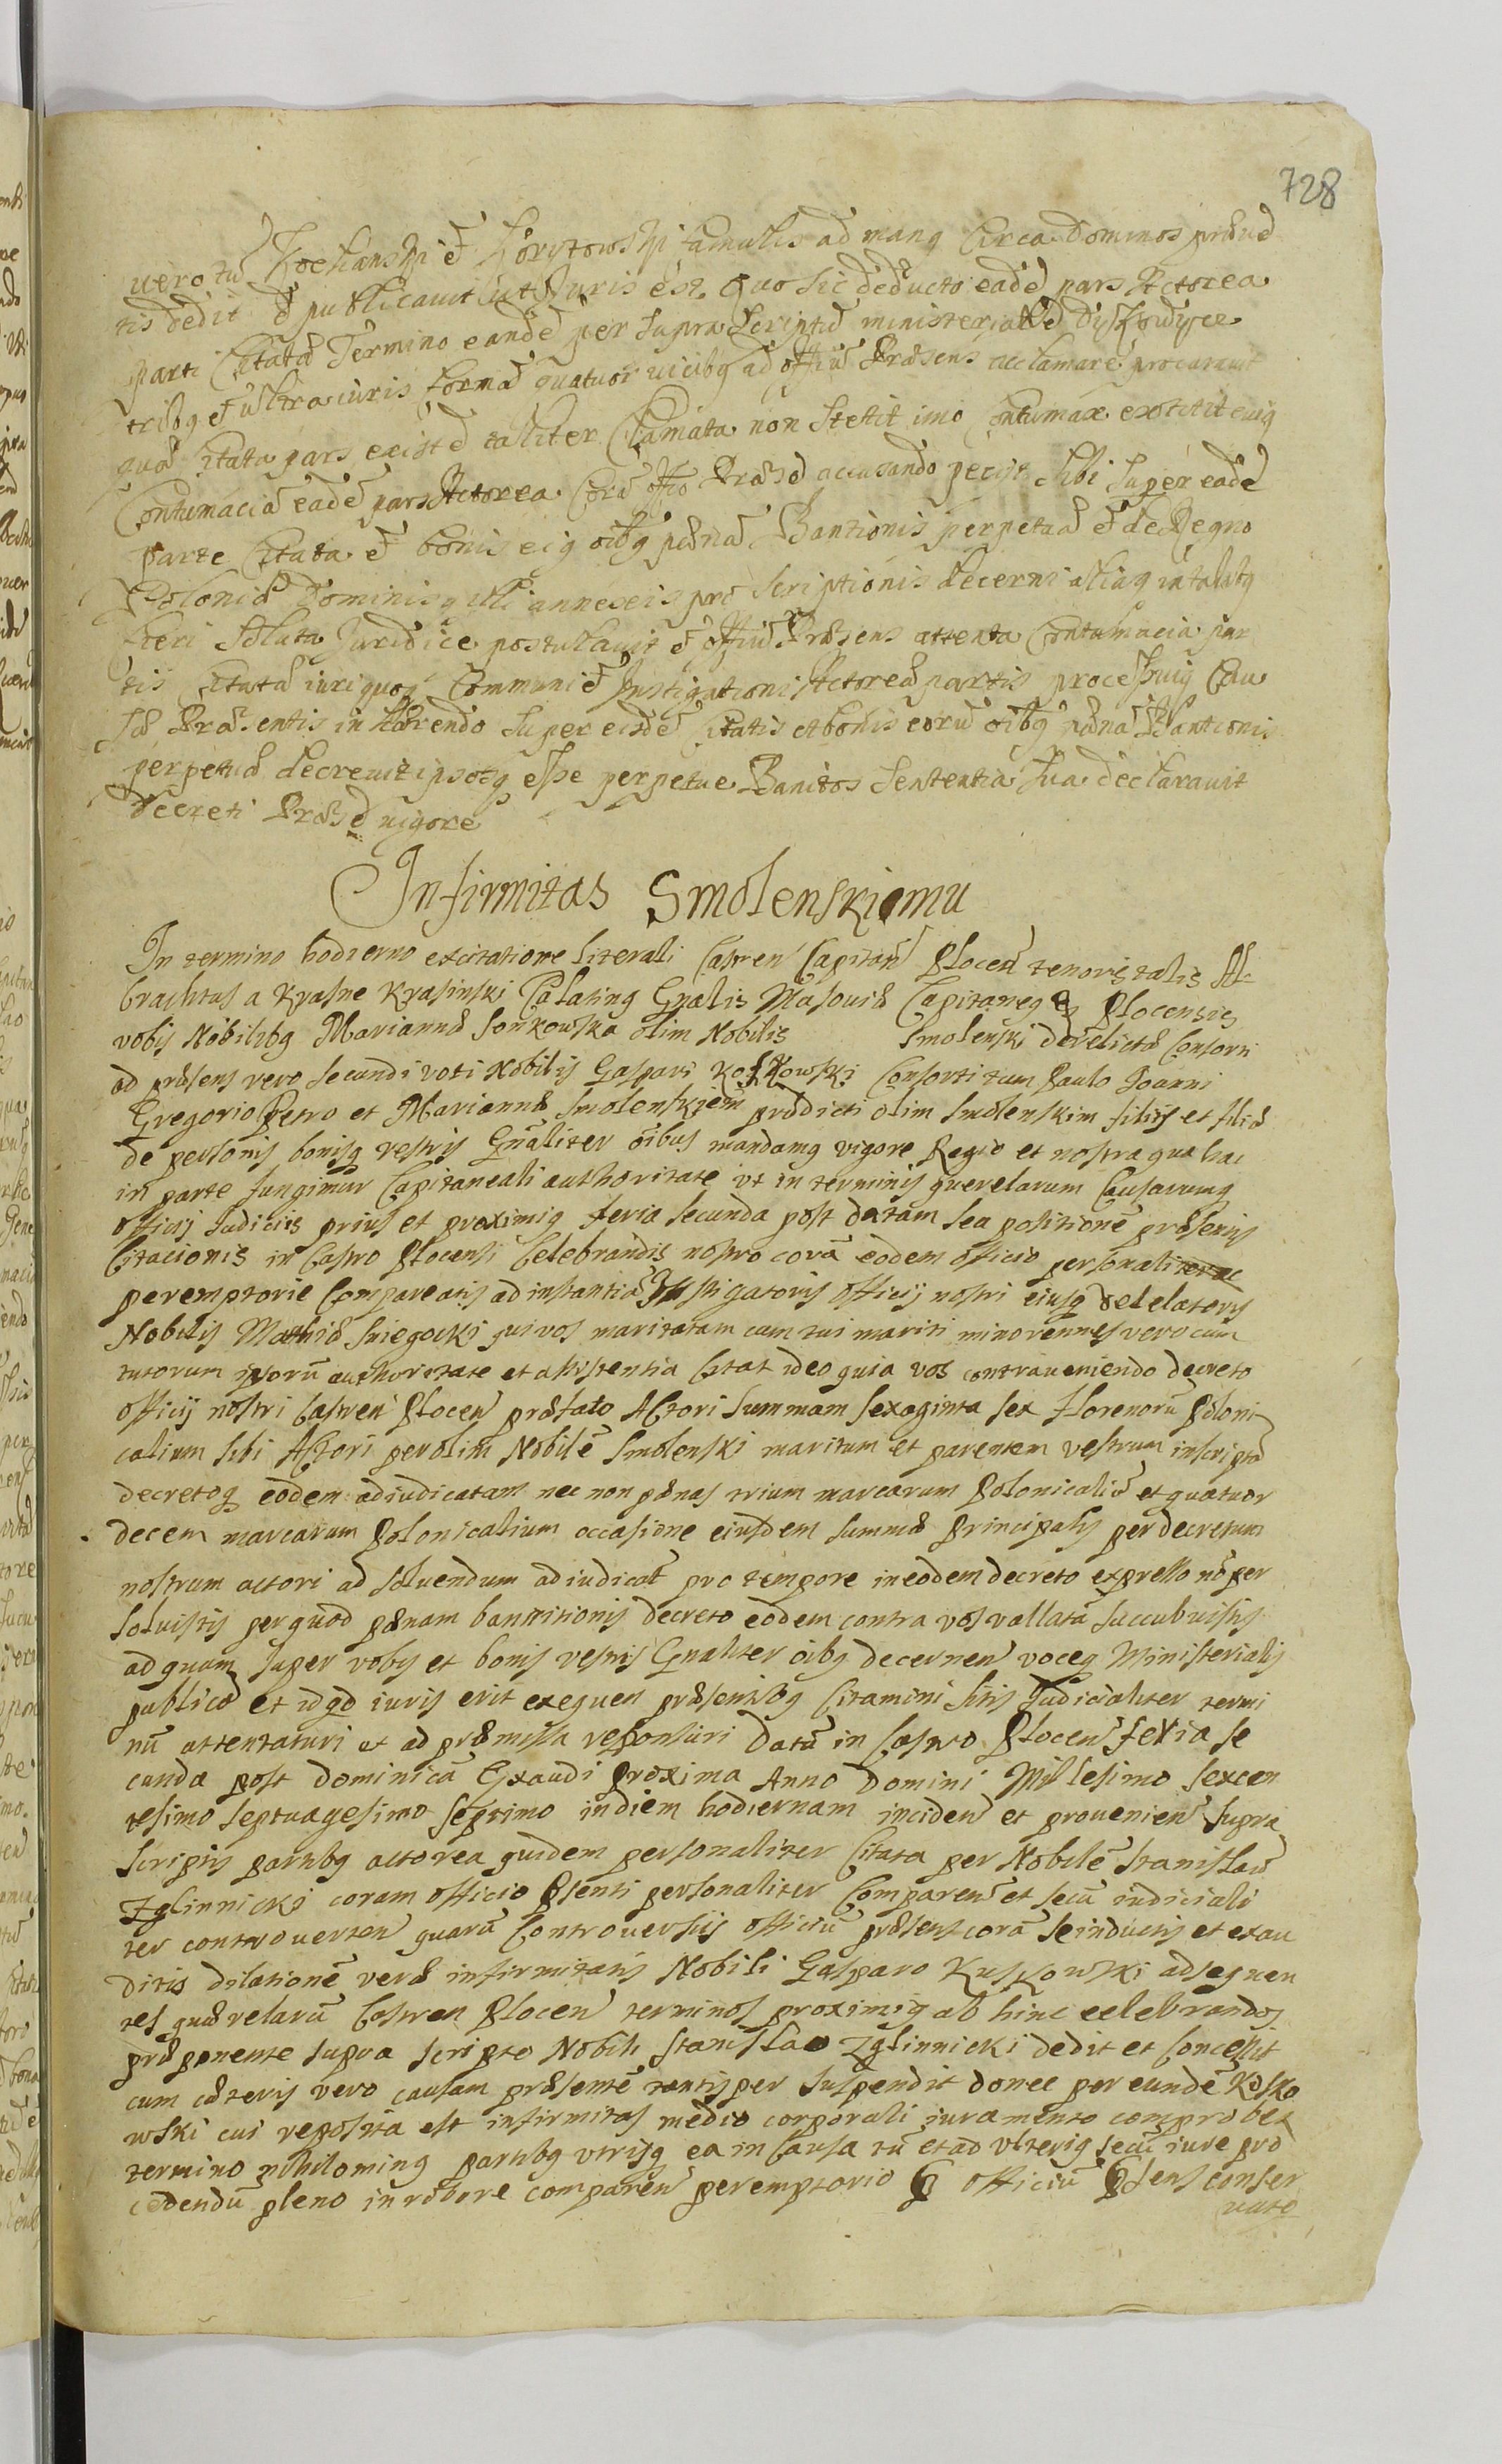 728
uero tū Kochanski ē Korytowski famulis ad manq Circa Dominos prūd
tis dedit ē publicauit ut Juris est. Quo sic deducto eadē pars Actorea
parti Citatæ Termino eandē per supra Scriptū ministerialē
tribq et ultra iuris formā quatuor uicibq ad offiū Præsens acclamare procurauit
quæ Citata pars existē taliter Clamata non stetit imo Contumax extitit cuiq
Contumaciā eadē pars Actorea Corā offo Præsē accusando petijt sibi super eadē
parte Citata ē bonis eiq oībq pœnā Bannionis perpetuā ē de Regno
Poloniæ Dominijsq illi annexis pro scriptionis decerni aliaq in talibq
fieri soluta Juridice postulauit ē offiū Præsens attenta Contumacia par
tis Citatæ iuri quoq Communi ē Instigationi Actoreæ partis processuiq Cau
sæ Præsentis in hærendo super eisdē Citatis et bonis eorū oībq pœnā Bannionis
perpetuæ decreuit ipsosq esse perpetue Banitos Sententia sua declarauit
decreti Præsē uigore
Infirmitas Smolenskiemu
In termino hodierno ex citatione literali Castren Capitan Plocen tenoris talis Al-
brachtus a Krasne Krasinski Palatinq Gnālis Masouiæ Capitaneq Plocensis
vobis Nobilibq Mariannæ Sonkowska olim Nobilis Smolenski derelictæ Consorti
ad præsens vero secundi voti Nobilis Gaspari Koskowski Consorti tum Paulo Joanni
Gregorio Petro et Mariannæ Smolenskiem prædicti olim Smolenskim filijs et filiæ
de personis bonisq vestris Gnāliter oībus mandamq vigore Regio et nostra qua hac
in parte fungimur Capitaneali authoritate vt in terminis querelarum Causarumq
officij Iudicijs prius et proximiq feria secunda post datam sea positionē præsentis
Citacionis in Castro Plocensi Celebrandis nostro corā eodem officio personaliter ac
peremptorie Compareatis ad instantiā Instigatoris officij nostri eiusq delatoris
Nobilis Mathiæ Sniegocki qui vos maritatam cum tui mariti minorennes vero cum
tutorum ipsorū authoritate et assistentia Citat ideo quia vos contraueniendo decreto
officij nostri Castren Plocen præfato Actori Summam sexaginta sex Florenorū Poloni
calium sibi Actori per olim Nobilē Smolenski maritum et parentem vestrum inscriptā
decretoq eodem adiudicatam nec non pænas trium marcarum Polonicaliū et quatuor
decem marcarum Polonicalium occasione eiusdem summæ Principalis per decretum
nostrum actori ad soluendum adiudicat pro tempore in eodem decreto expresso nō per
soluistis per quod pænam bannitionis decreto eodem contra vos vallatā succubuistis
ad quam super vobis et bonis vestris Gnāliter oībq decernen voceq Ministerialis
publicæ et id qd iuris erit exequen præsentibq Citamini sitis Judicialiter termi
nū attentaturi et ad præmissa responsuri Datū in Castro Plocen feria se
cunda post dominicā Exaudi Proxima Anno Domini Millesimo sexcen
tesimo septuagesimo septimo in diem hodiernam inciden et prouenien supra
scriptis partibq actorea quidem personaliter Citata per Nobilē Stanislaū
Zglinnicki coram officio Psenti personaliter Comparen et secū iudiciali
ter controuerten quarū Controuersijs officiū præsens corā se inductis et exau
ditis dilationē veræ infirmitatis Nobili Gasparo Kuskowski ad sequen
tes quærelarū Castren Plocen terminos proximiq ab hinc celebrandos
præponente supra scripto Nobili Stanislao Zglinnicki dedit et Concessit
cum cæteris vero causam præsentē tantisper suspendit donec per eundē Kosko
wski cui reposita est infirmitas medio corporali iuramento comprobet
termino nihilominq partibq vtrisq ea in Causa tū et ad vlteriq secū iure pro
cedendū pleno in robore comparen peremptorio officiū Psens conser
uato